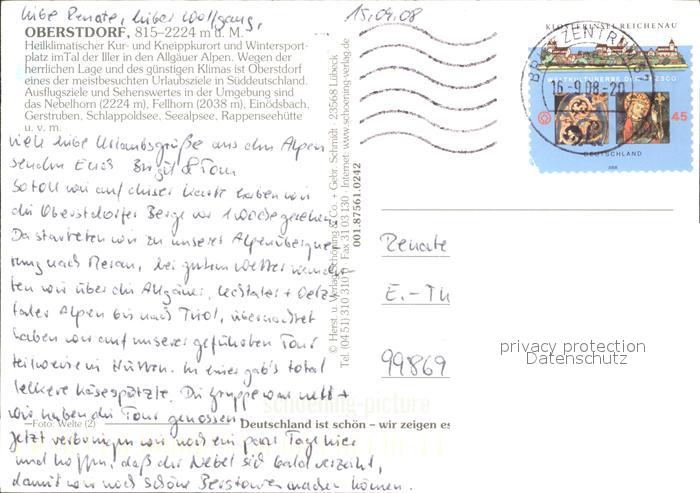 liebe Renate, lieber Wolfgang,
15.09.08
OBERSTDORF, 815–2224 m ü. M.
Heilklimatischer Kur- und Kneippkurort und Wintersport-
platz im Tal der Iller in den Allgäuer Alpen. Wegen der
herrlichen Lage und des günstigen Klimas ist Oberstdorf
eines der meistbesuchten Urlaubsziele in Süddeutschland.
Ausflugsziele und Sehenswertes in der Umgebung sind
das Nebelhorn (2224 m), Fellhorn (2038 m), Einödsbach,
Gerstruben, Schlappoldsee, Seealpsee, Rappenseehütte
u. v. m.
viele liebe Urlaubsgrüße aus den Alpen
senden Euch Birgit & Tom
So toll wie auf dieser Karte haben wir
die Oberstdorfer Berge vor 1 Woche gesehen.
Da starteten wir zu unserer Alpenüberque-
rung nach Meran, bei gutem Wetter wander-
ten wir über die Allgäuer, Lechtaler + Oetz-
taler Alpen bis nach Tirol, übernachtet
haben wir auf unserer geführten Tour
teilweise in Hütten. In einer gab's total
leckere Käsespätzle. Die Gruppe war nett +
wir haben die Tour genossen.
Jetzt verbringen wir noch ein paar Tage hier
und hoffen, daß der Nebel sich bald verzieht,
damit wir noch schöne Bergtouren machen können.
–Foto: Welte (2)
Deutschland ist schön – wir zeigen es
© Herst. u. Verlag Schöning & Co. + Gebr. Schmidt · 23568 Lübeck
Tel. (04 51) 310 310 Fax 31 03 130 · Internet: www.schoening-verlag.de
001.87561.0242
KLOSTERINSEL REICHENAU
WELTKULTURERBE DER UNESCO
45
DEUTSCHLAND
2008
BRIEFZENTRUM
16.-9.08-20
Renate
E.-Th
99869
privacy protection
Datenschutz
schoening-picture